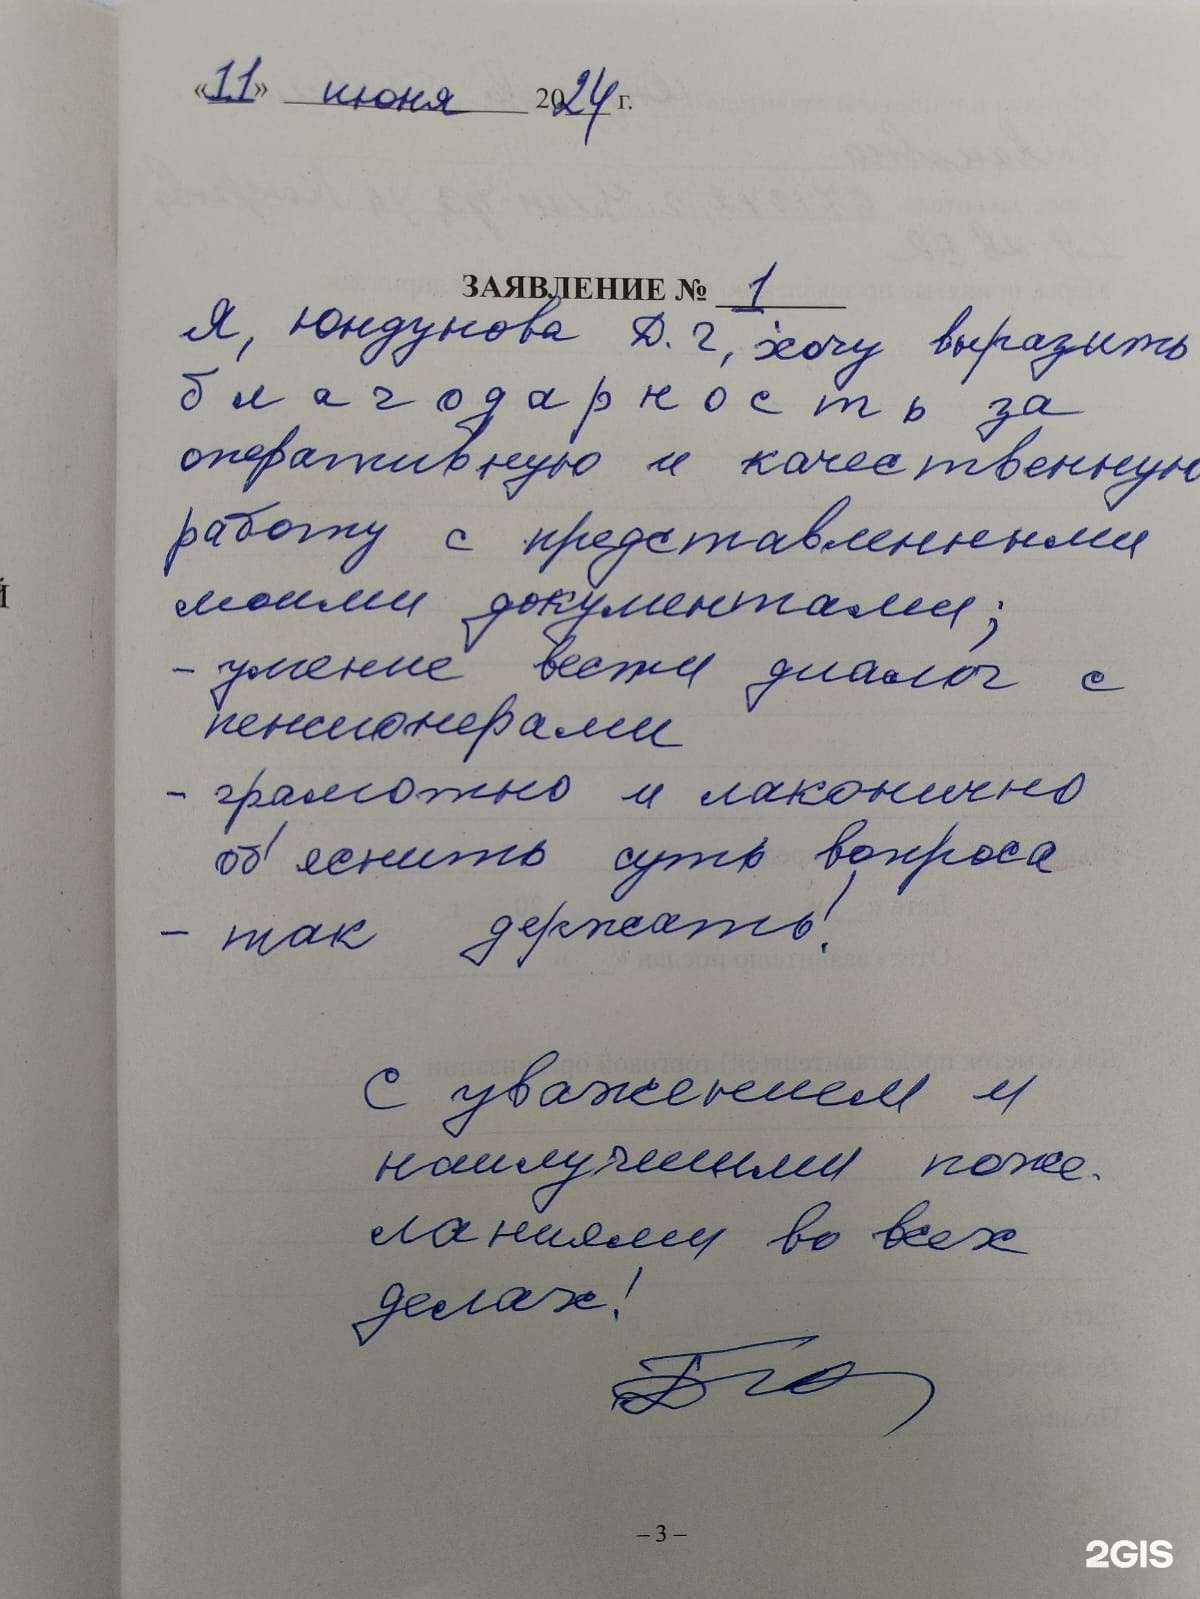 «11» июня 2024 г.
ЗАЯВЛЕНИЕ № 1
Я, Юндунова Д. Г, хочу выразить
благодарность за
оперативную и качественную
работу с представленными
моими документами;
- умение вести диалог с
пенсионерами
- грамотно и лаконично
объяснить суть вопроса
- так держать!
С уважением и
наилучшими поже-
ланиями во всех
делах!
Й
– 3 –
2GIS